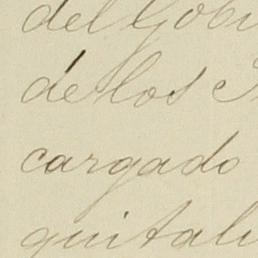 del Gobi
de los
cargado
quitali